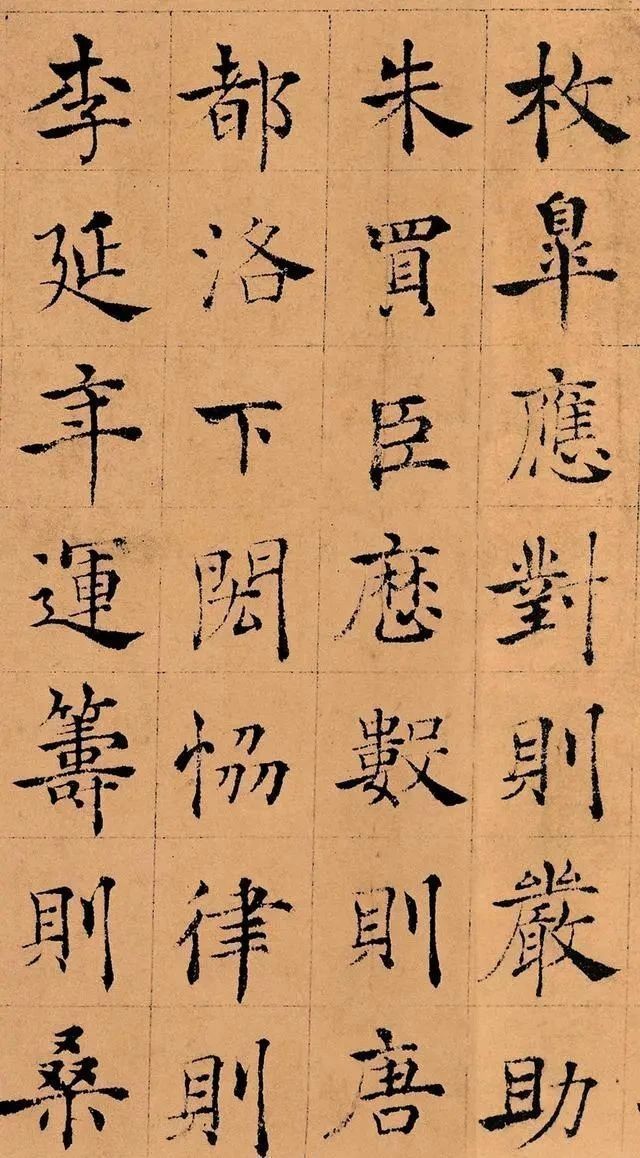 枚皋應對則嚴助
朱買臣歷數則唐
都洛下閎恊律則
李延年運籌則桑